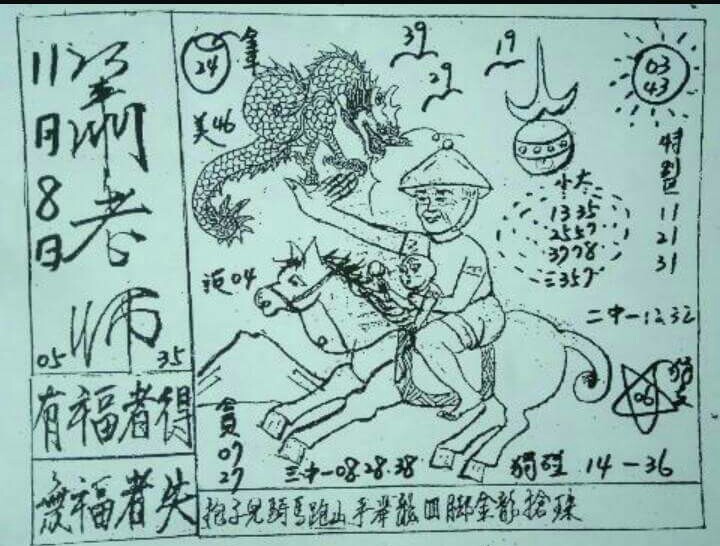 11月8日
蕭老师
05 35
有福者得
無福者失
24
39
29
19
03
43
美46
特別区
11
21
31
小大
1335
2557
3778
二357
范04
二中一12.32
06
貪
07
27
三中一08.28.38
獨碰 14-36
抱子兒騎馬跑山手举龍四脚金龍搶珠